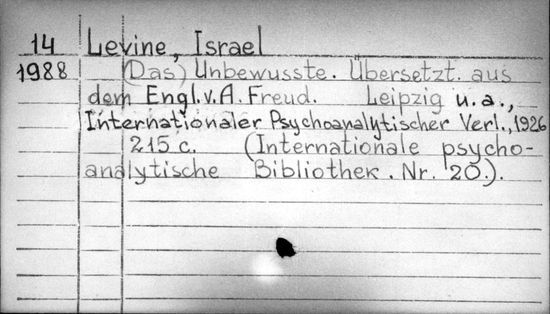 14 Levine, Israel
1988 (Das) Unbewusste. Übersetzt. aus
dem Engl. v. A. Freud. Leipzig u.a.,
Internationaler Psychoanalytischer Verl., 1926
215 c. (Internationale psycho-
analytische Bibliothek. Nr. 20.).